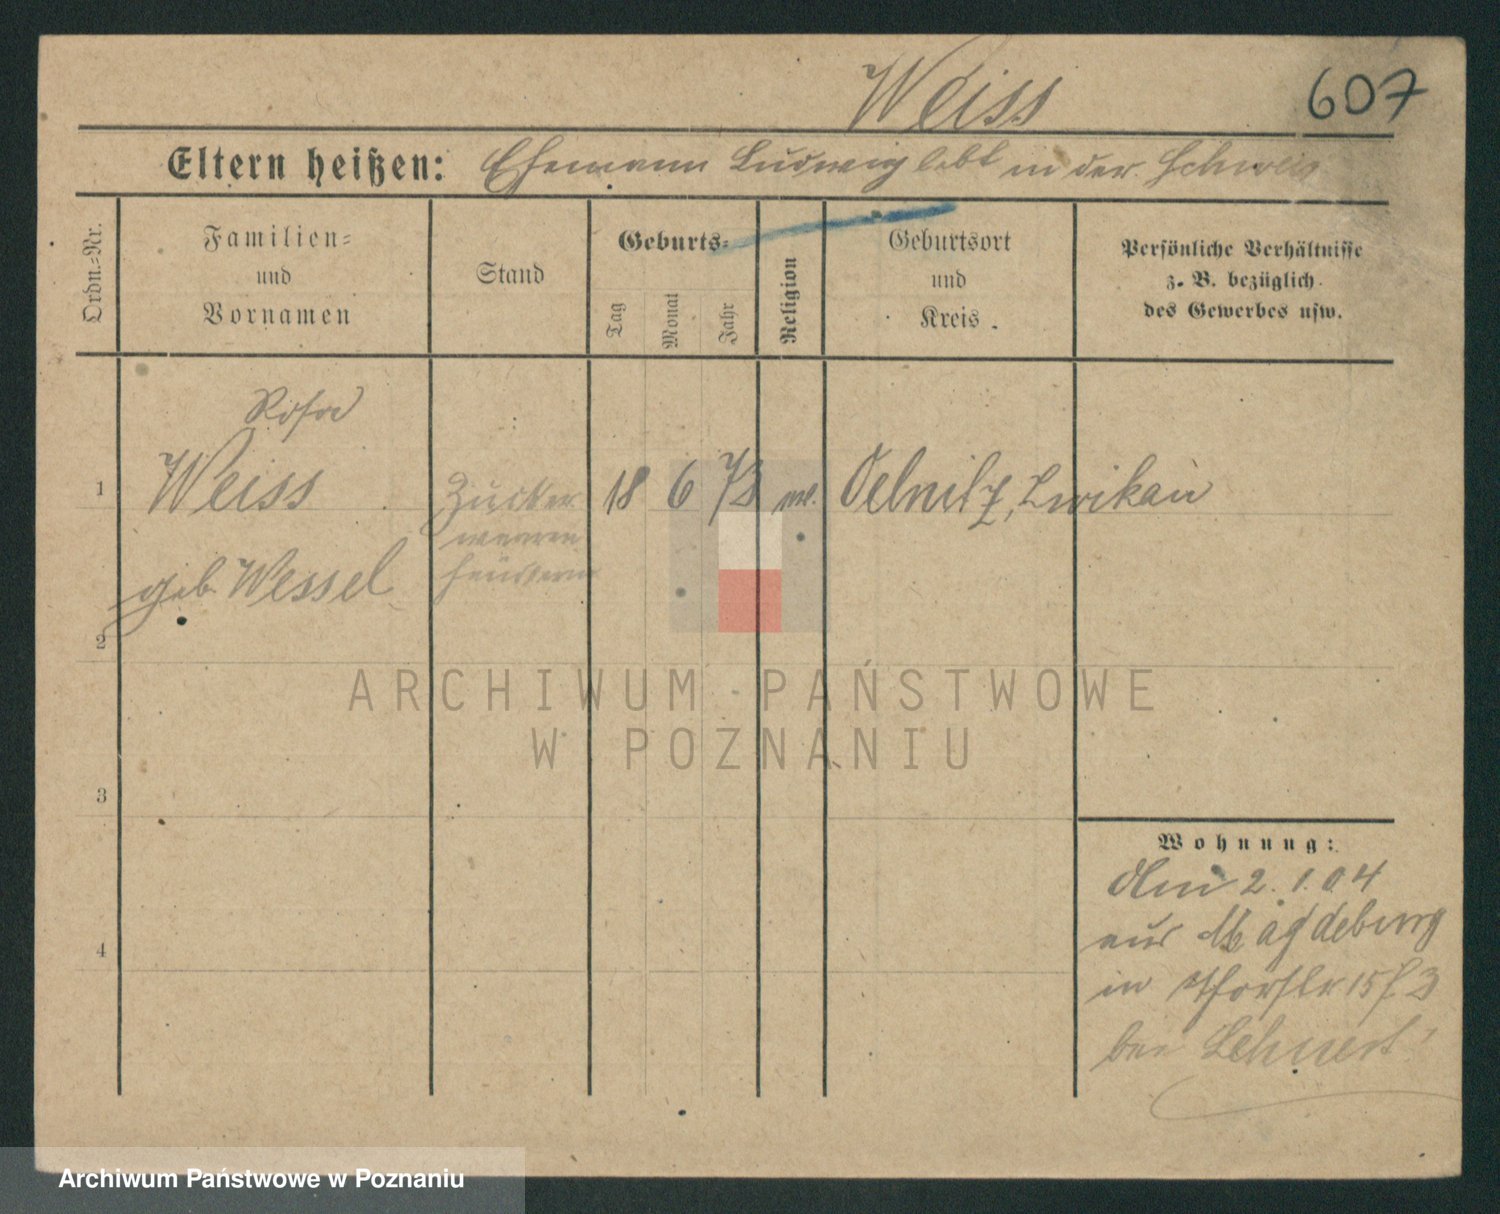 Weiss
607
Eltern heißen: Ehemann Ludwig lebt in der Schweiz
Ordn.-Nr.
Familien-
und
Vornamen
Stand
Geburts-
Tag
Monat
Jahr
Religion
Geburtsort
und
Kreis
Persönliche Verhältnisse
z. B. bezüglich
des Gewerbes usw.
Rosa
1 Weiss Zucker 18 6 73 ev. Oelnitz, Zwikau
waaren
händlerin
geb. Wessel
2
ARCHIWUM PAŃSTWOWE
W POZNANIU
3
Wohnung:
Am 2. 1. 04
aus Magdeburg
4
in 15 3
bei Lehnert
Archiwum Państwowe w Poznaniu